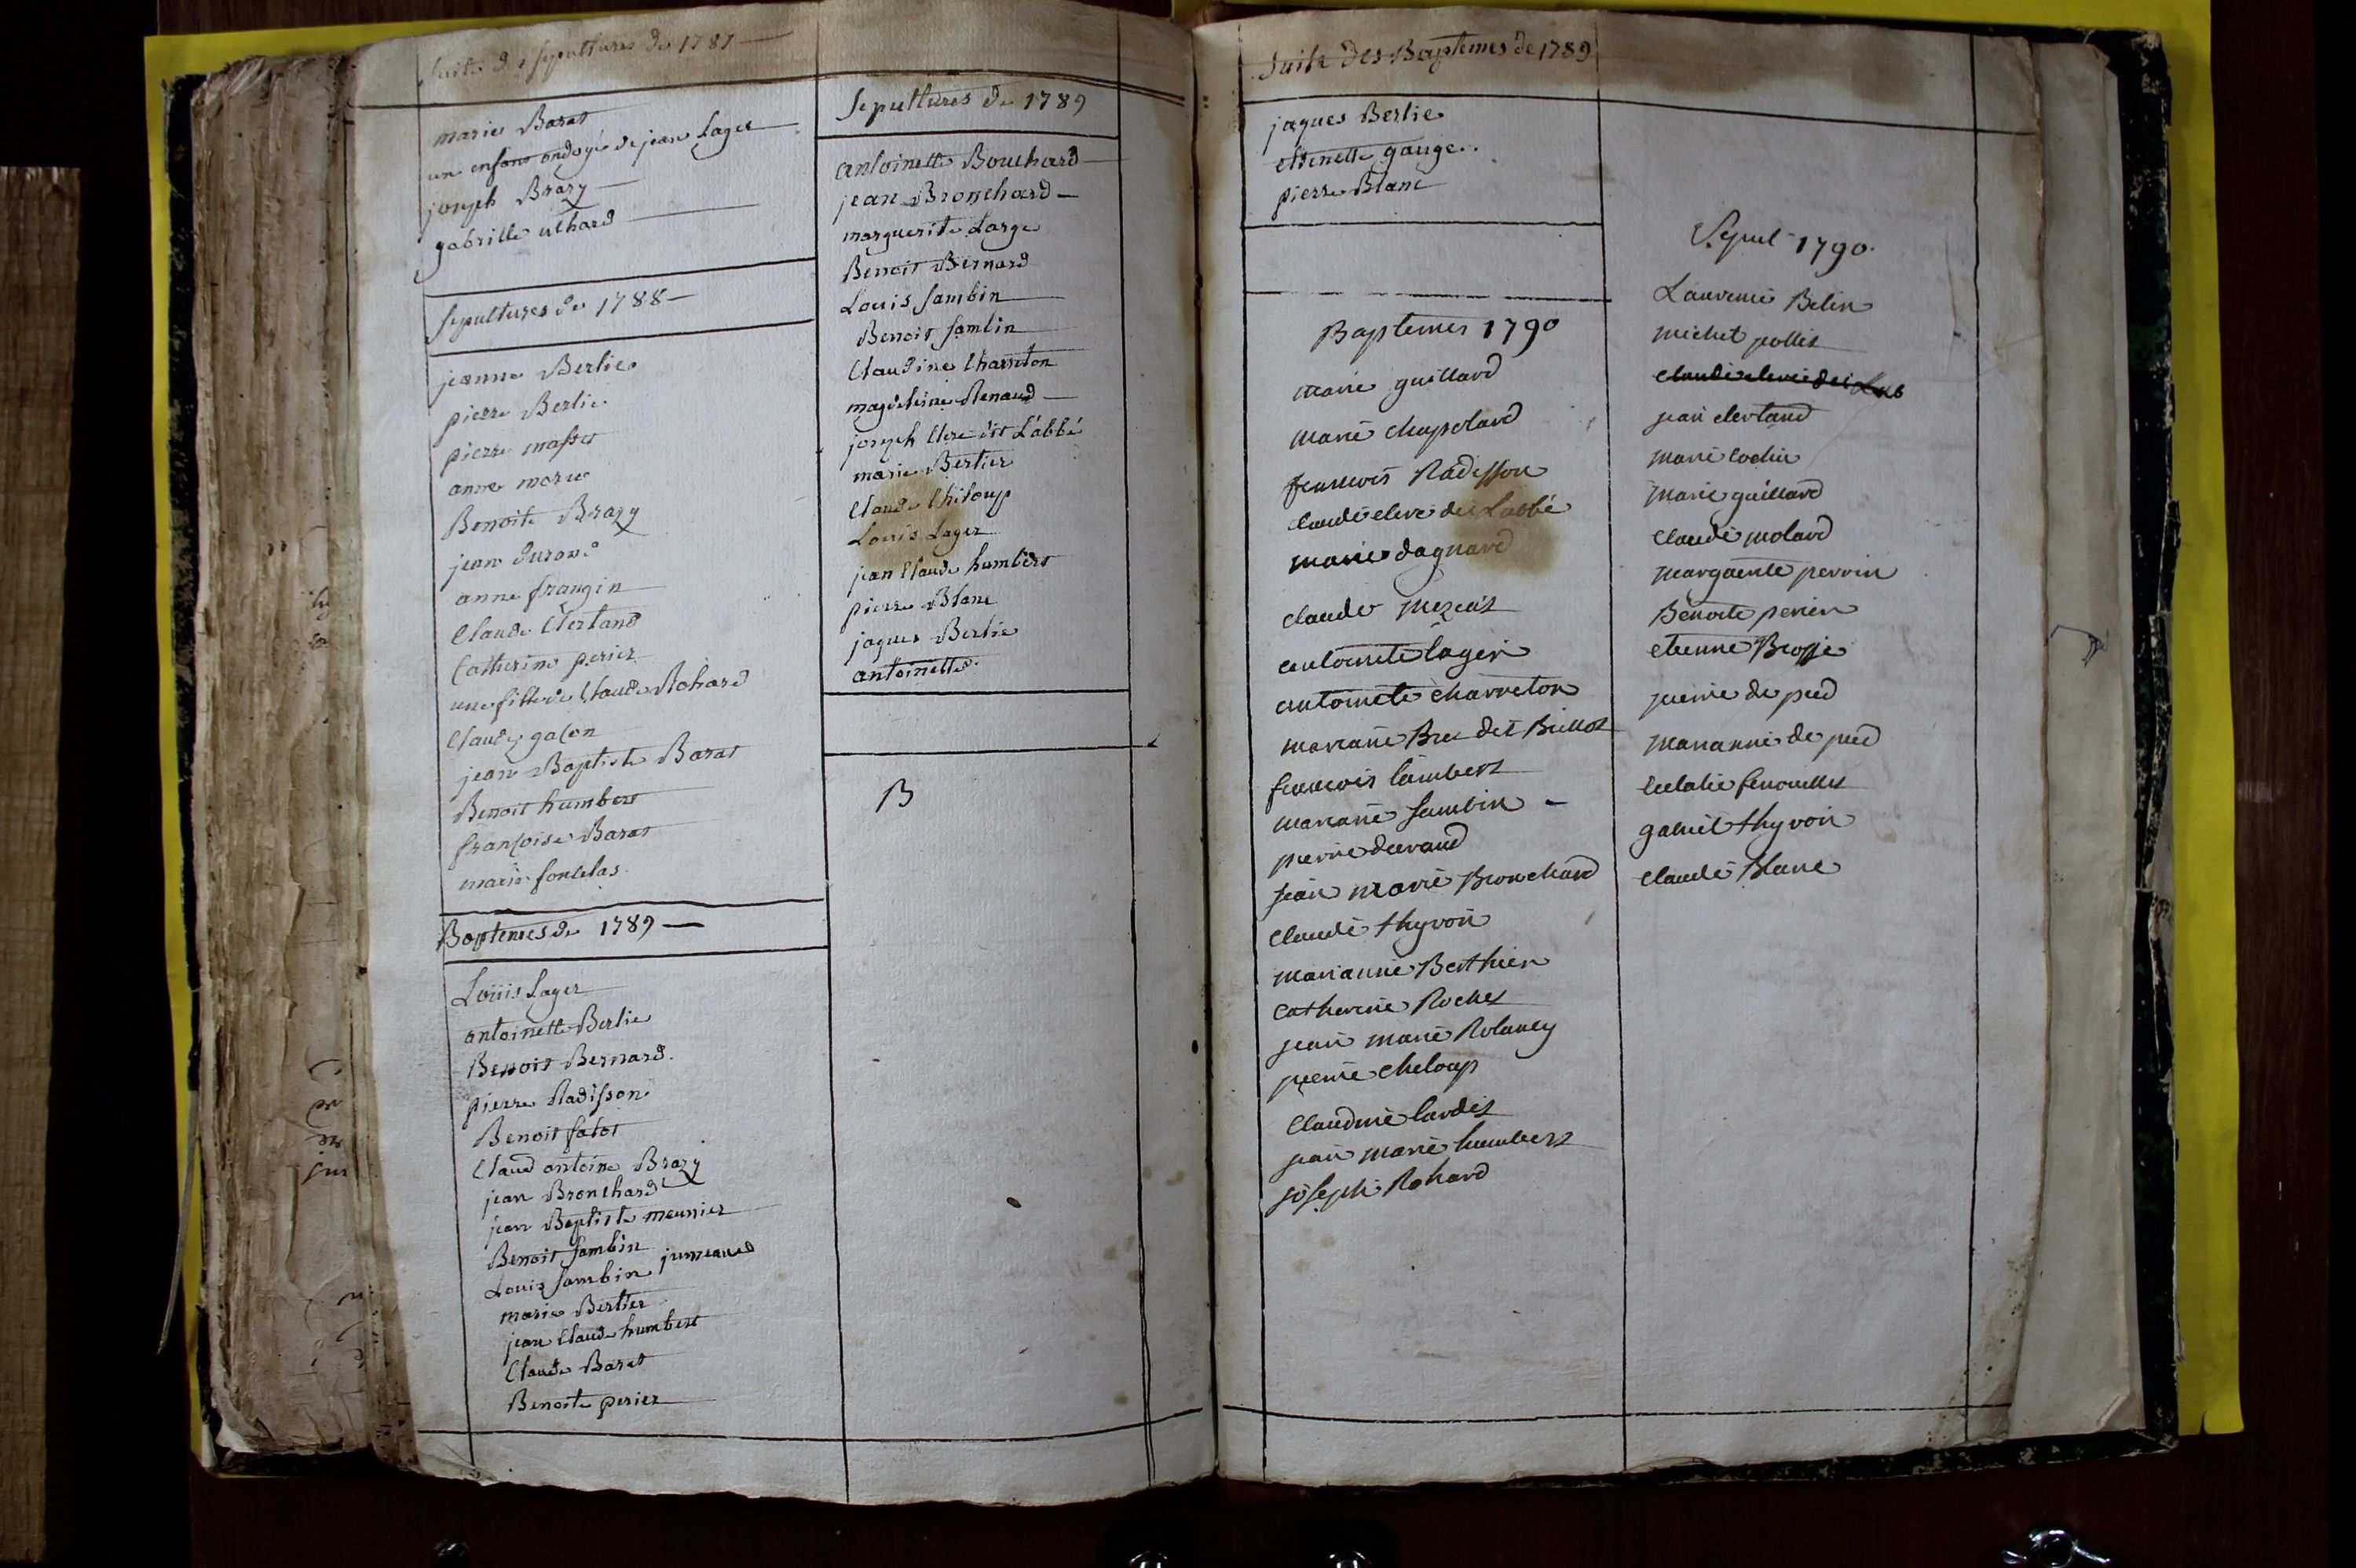 Suite des sepultures de 1787
marie Barat
un enfant ondoyé de jean Lager
joseph Brazy
gabrille uthard
sepultures de 1788
jeanne Berlie
pierre Berlie
pierre
anne
Benoite Brazy
jean durand
anne frangin
Claude Clertand
Catherine perier
une fille de Claude Rohard
Claude galon
jean Baptiste Barat
Benoit humbert
françoise Barat
marie
Baptemes de 1789
Loüis Lager
antoinette Berlie
Benoit Bernard
pierre Radisson
Benoit falot
Claud antoine Brazy
jean Bronchard
jean Baptiste meunier
Benoit sambin
Louis sambin jumeaues
marie Bertier
jean Claude humbert
Claude Barat
Benoite perier
sepultures de 1789
antoinette Bouchard
jean Bronchard
marguerite Large
Benoit Bernard
Louis sambin
Benoit sambin
Claudine Charreton
magdeleine Renaud
joseph Clere dit L'abbé
marie Bertier
Claude Chiloup
Louis Lager
jean Claude humbert
pierre Blanc
jaques Berlie
antoinette
B
Suite des Baptemes de 1789
jaques Berlie
ettenette gauge
pierre Blanc
Baptemes 1790
marie guillard
marie chapolard
francois Radisson
claude clere dit Labbé
marie dagnard
claude
antoinete lager
antoinete charreton
mariane Bru dit Brillot
francois lambert
mariane sambin
pierre durand
jean marie Bronchard
claude thyvon
marianne Berthier
catherine Rochet
jean marie Rolancy
pierre cheloup
Claudine lardet
jean marie humbert
joseph Rohard
Sepul 1790
Laurence Belin
michel pollet
claude clere dit Lab
jean clertand
marie cochu
marie guillard
claude molard
marguerite perrin
Benoite perier
etienne Brosse
pierre de pied
marianne de pied
eulalie fenouillet
gabriel thyvon
claude Blanc